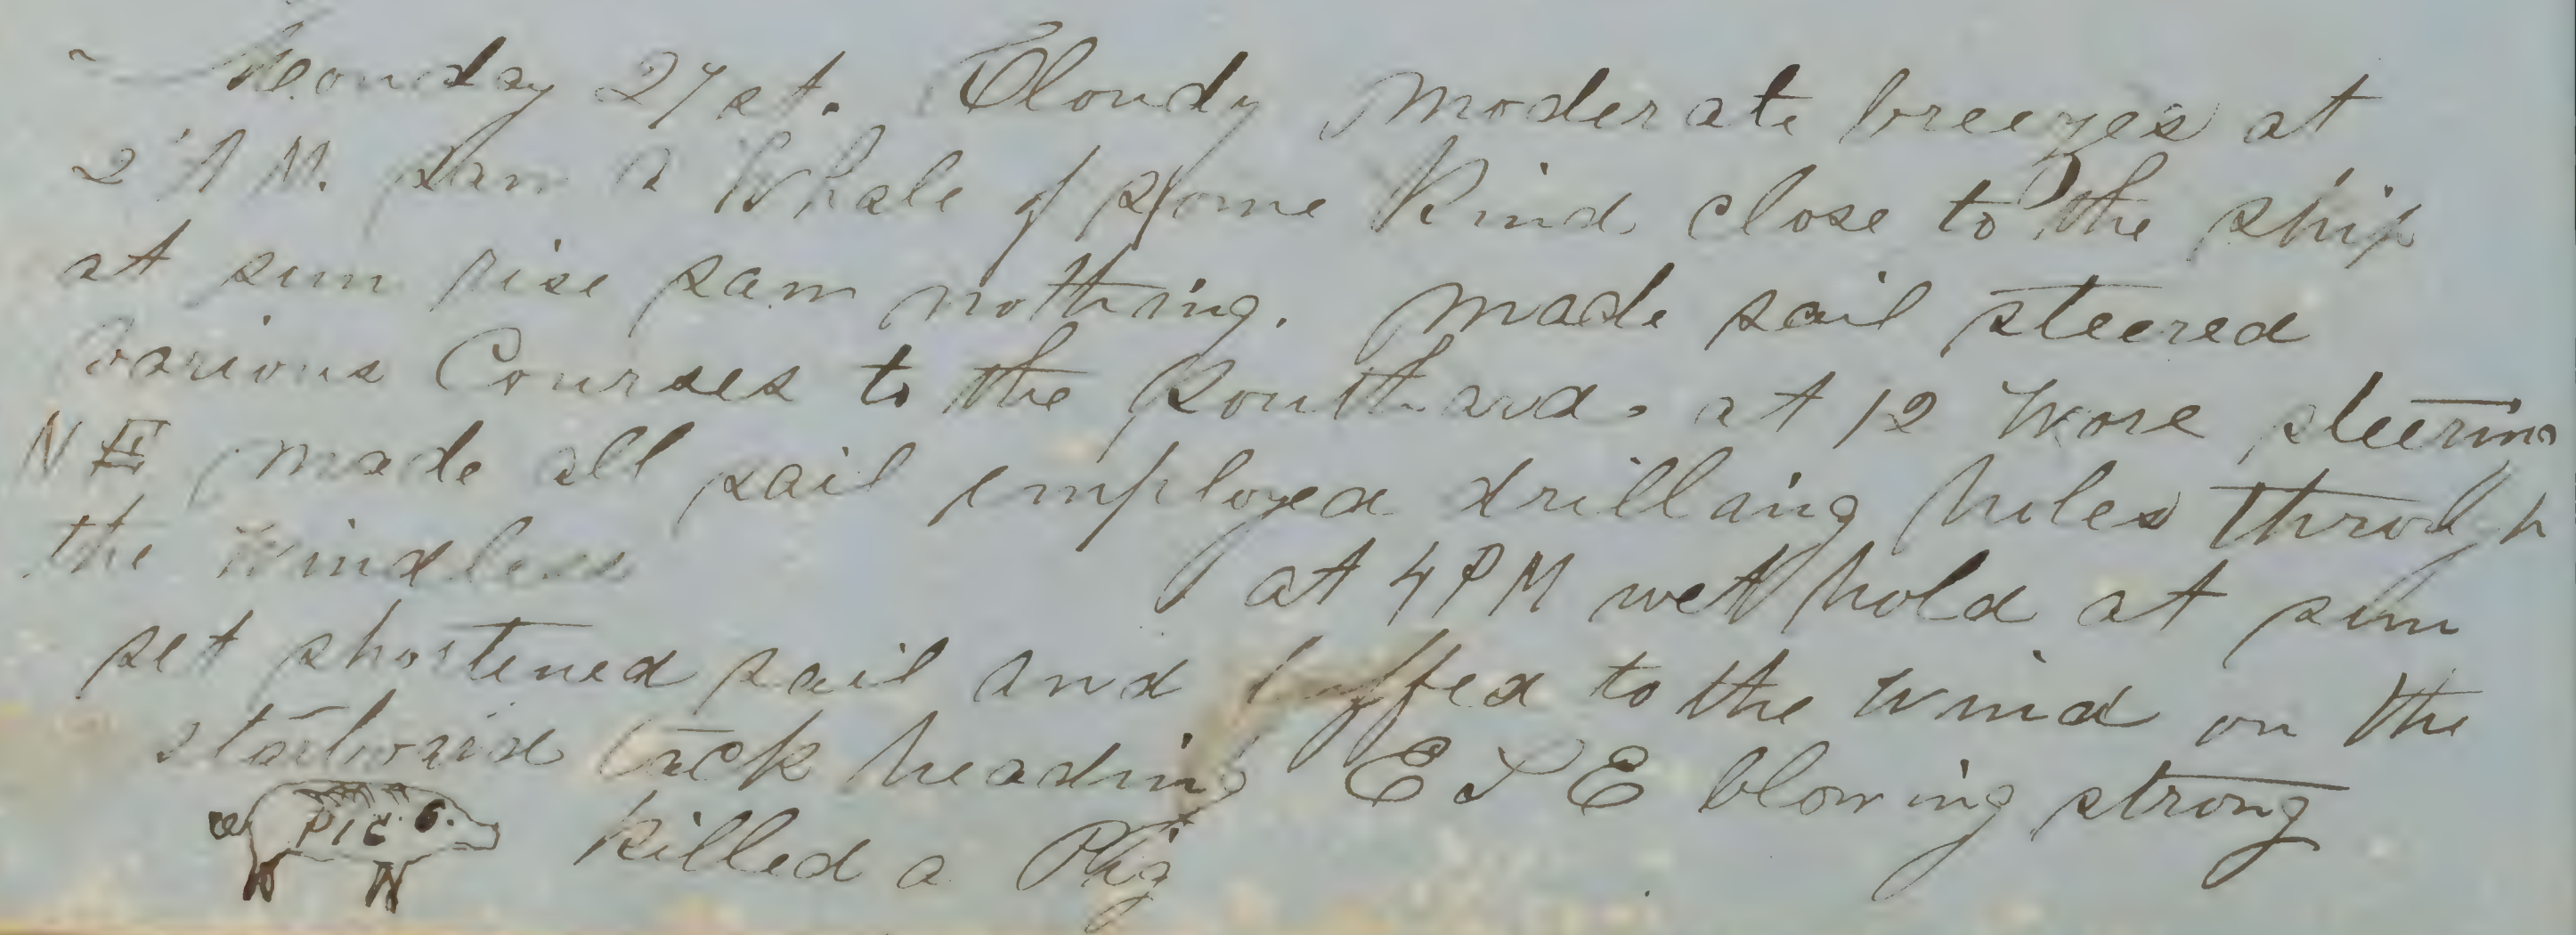 Monday 21st. Cloudy moderate breezes at
2 AM. saw a Whale of some Kind close to the ship
at sun rise saw nothing. made sail steered
various Courses to the Southard. at 12 Wore steering
NE made all sail employed drilling holes through
the windless at 4 PM wet hold at sun
set shortened sail and luffed to the wind on the
starboard tack heading E S E blowing strong
PIG 6. killed a Pig